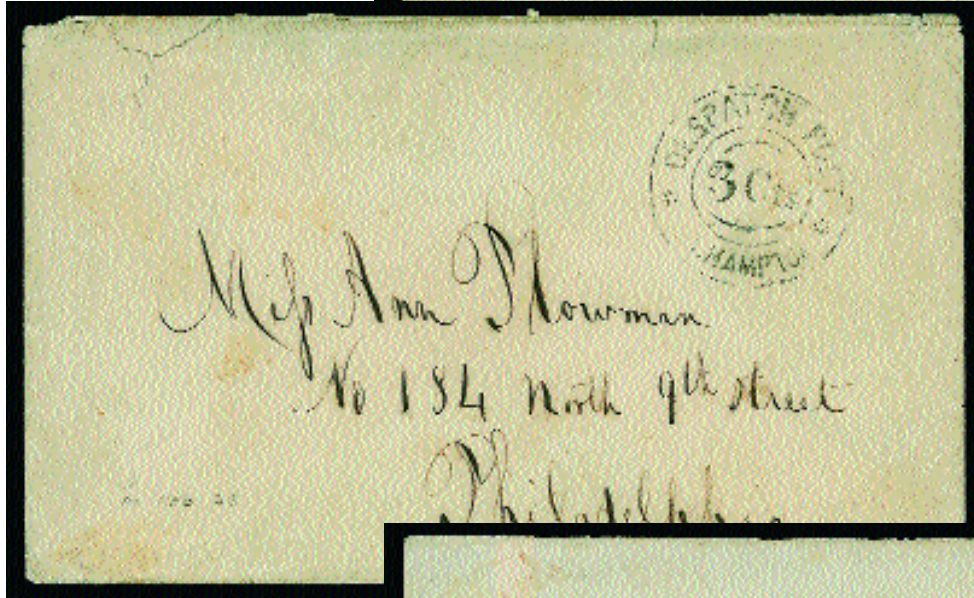 DESPATCH POST
3 Cts
HAMPTON
Miss Ann Plowman
No 184 North 9th Street
Philadelphia